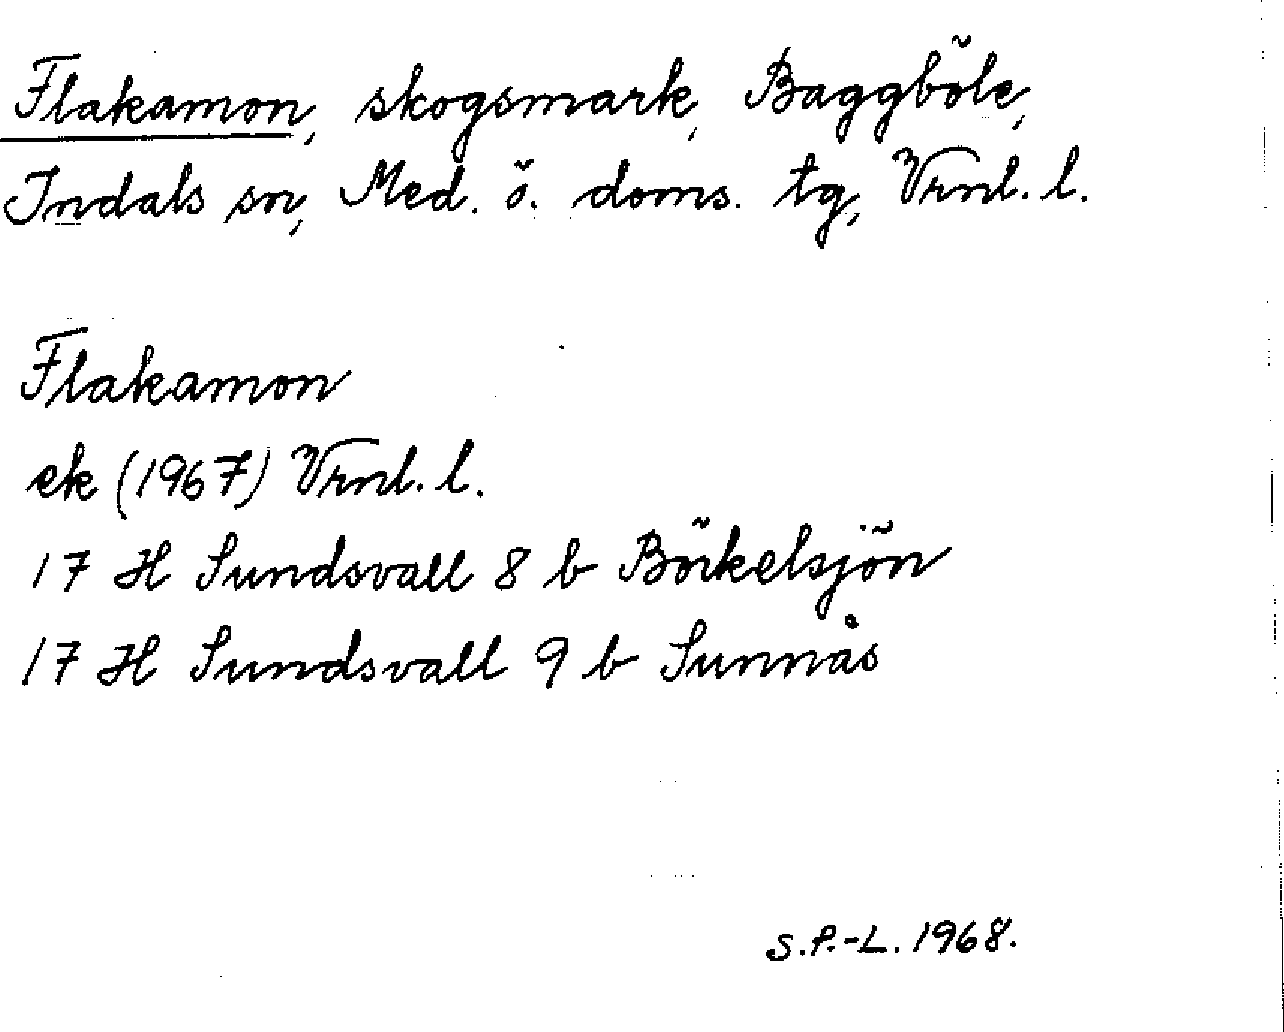 Flakamon, skogsmark, Baggböle,
Indals sn, Med. ö. doms. tg, Vrnl. l.
Flakamon
ek (1967) Vrnl. l.
17 H Sundsvall 8 b Börkelsjön
17 H Sundsvall 9 b Sunnås
S.P.-L. 1968.